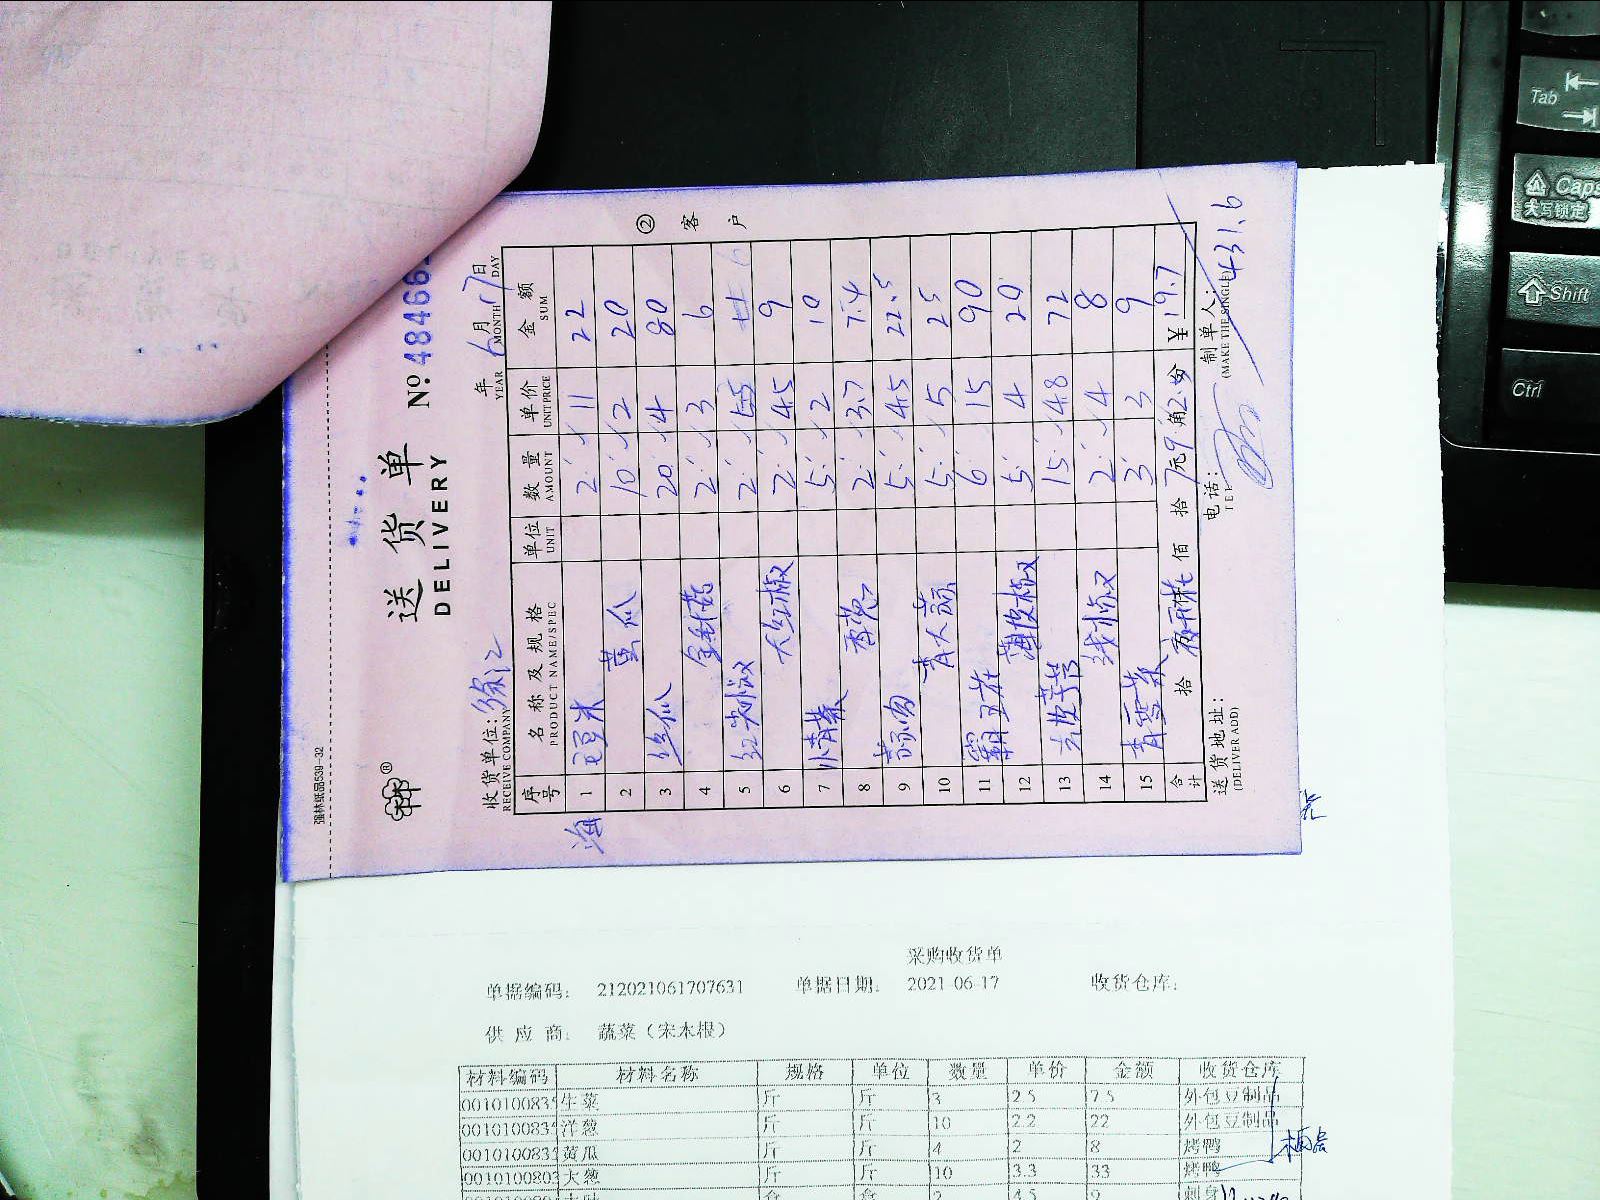 强林纸品539-32
送货单
DELIVERY
№ 48466
收货单位: 徐汇
RECEIVE COMPANY
年 6月17日
YEAR MONTH DAY
② 客户
序号 名称及规格 单位 数量 单价 金额
PRODUCT NAME/SPEC UNIT AMOUNT UNIT PRICE SUM
海
1 毛豆米 2 11 22
2 黄瓜 10 2 20
3 丝瓜 20 4 80
4 金针菇 2 3 6
5 红尖椒 2
6 大红椒 2 4.5 9
7 小青菜 5 2 10
8 2 3.7 7.4
9 5 4.5 22.5
10 5 5 25
11 6 15 90
12 薄皮椒 5 4 20
13 15 4.8 72
14 线椒 2 4 8
15 3 3 9
合计 拾 佰 拾 元9 角2 分 ¥19.7
送货地址:
(DELIVER ADD)
电话:
TEL
制单人:
(MAKE THE SINGLE)
431.6
采购收货单
单据编码: 212021061707631 单据日期: 2021-06-17 收货仓库:
供应商: 蔬菜（宋木根）
材料编码 材料名称 规格 单位 数量 单价 金额 收货仓库
001010083 生菜 斤 斤 3 2.5 7.5 外包豆制品
001010083 洋葱 斤 斤 10 2.2 22 外包豆制品
001010083 黄瓜 斤 斤 4 2 8 烤鸭
001010080 大葱 斤 斤 10 3.3 33 烤鸭
2 4.5 9 刺身
Tab
Caps
大写锁定
Shift
Ctrl